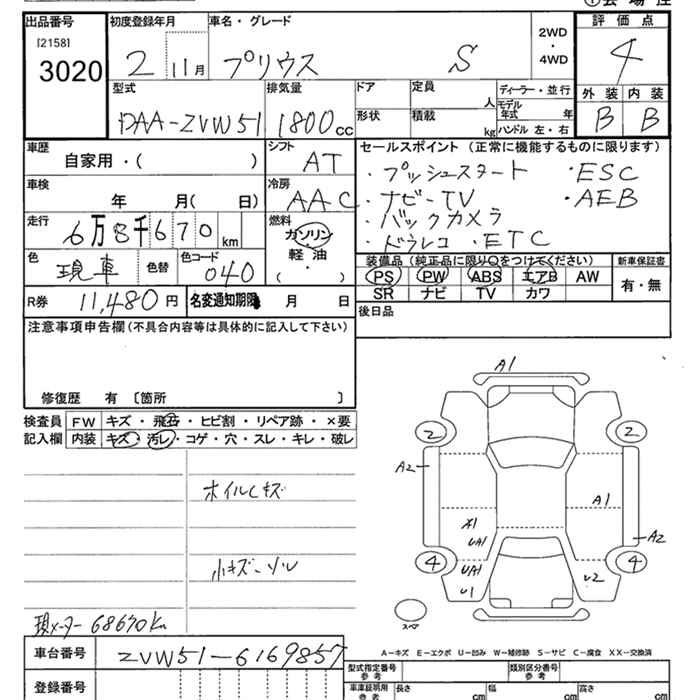 出品番号 初度登録年月 車名・グレード 2WD・4WD 評価点
[2158]
3020 2 11月 プリウス S 4
型式 排気量 ドア 定員 人 ディーラー・並行 外装 内装
形状 積載 kg モデル年式 年
DAA-ZVW51 1800cc ハンドル 左・右 B B
車歴 自家用・( ) シフト AT セールスポイント (正常に機能するものに限ります)
・プッシュスタート ・ESC
車検 年 月( 日) 冷房 AAC ・ナビ-TV ・AEB
走行 6万8千670km 燃料 ガソリン ・バックカメラ
軽油 ・ドラレコ・ETC
色 現車 色替 色コード 040 ( )
装備品 (純正品に限り○をつけてください) 新車保証書
PS PW ABS エアB AW 有・無
SR ナビ TV カワ
R券 11,480円 名変通知期限 月 日
後日品
注意事項申告欄(不具合内容等は具体的に記入して下さい)
修復歴 有 〔箇所 〕
検査員記入欄 FW キズ・飛石・ヒビ割・リペア跡・×要
内装 キズ・汚レ・コゲ・穴・スレ・キレ・破レ
A1
2 2
A2
ホイルCキズ
A1
X1
UA1 A2
4 UA1 4
小キズ-ソル
U1 U2
スペア
現メーター 68670km
A-キズ E-エクボ U-凹み W-補修跡 S-サビ C-腐食 XX-交換済
車台番号 ZVW51-6169857
登録番号
型式指定番号 参考 類別区分番号 参考
車庫証明用 参考 長さ cm 幅 cm 高さ cm